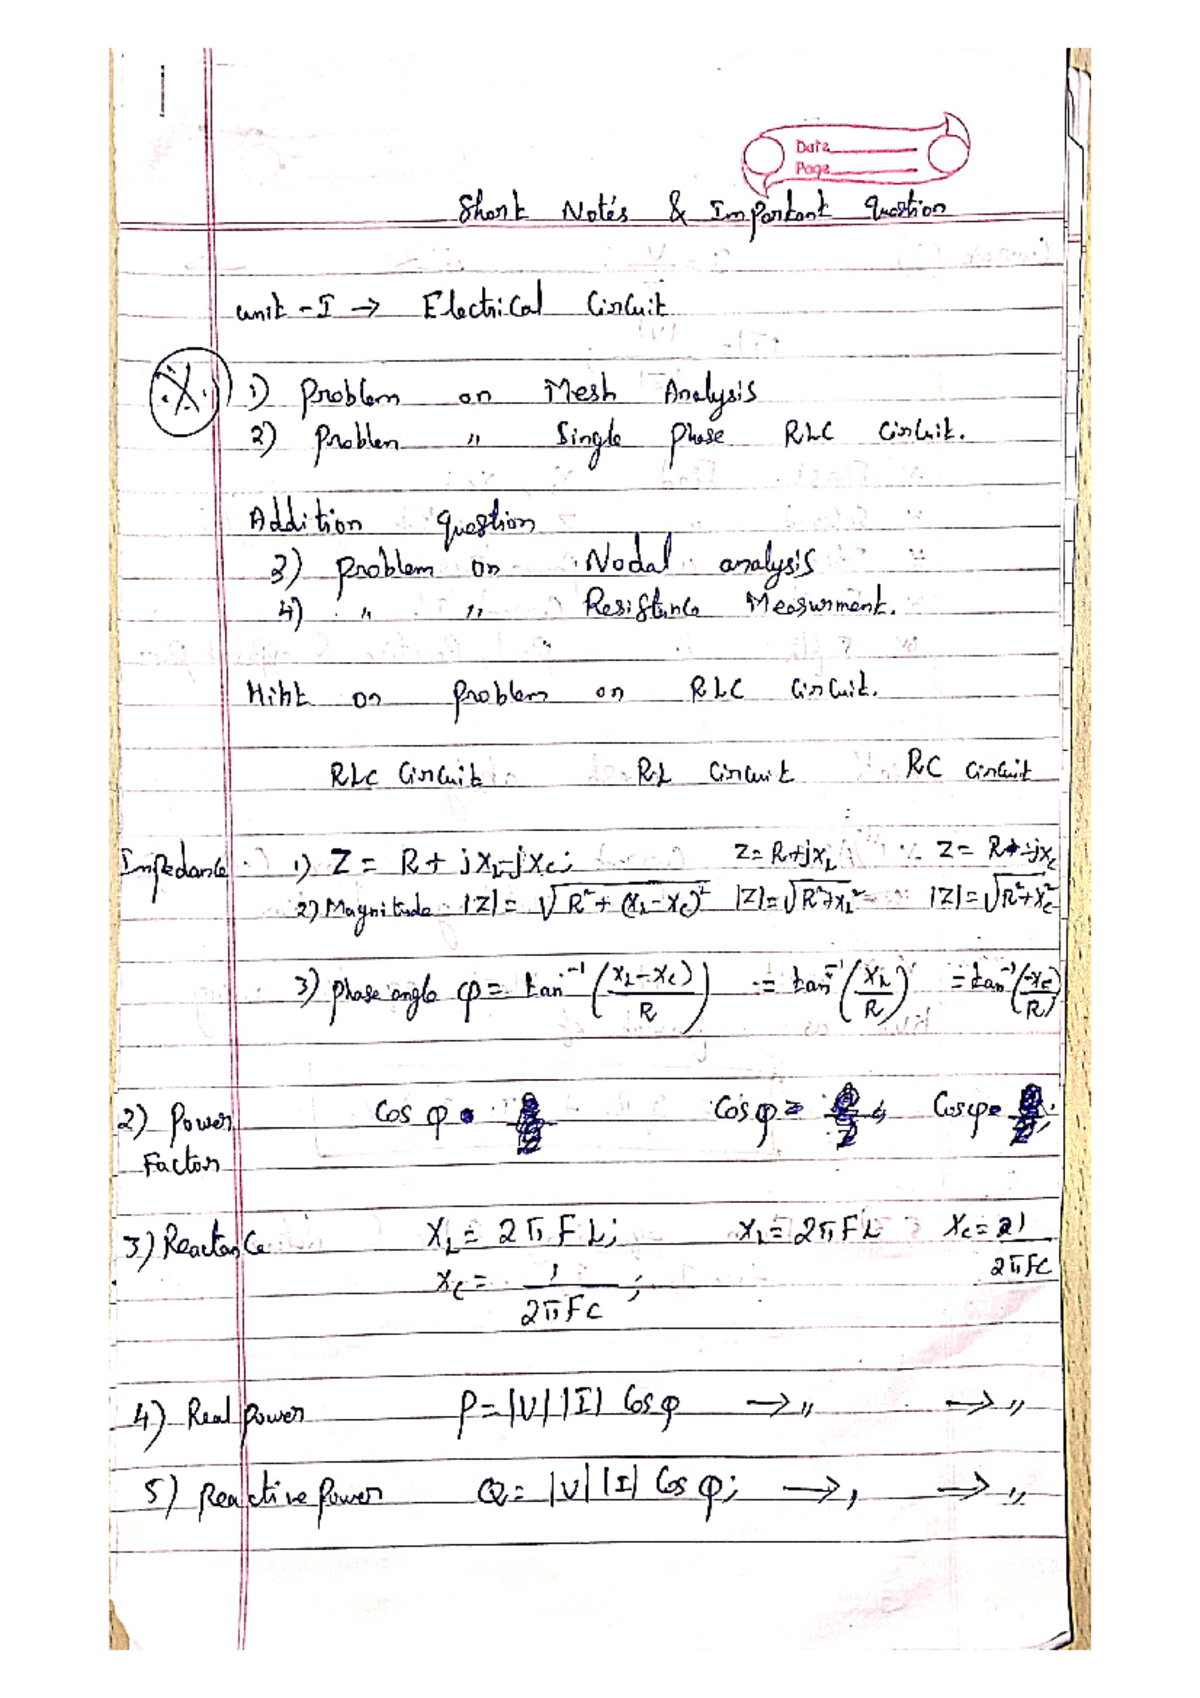 Date
Page
Short Notes & Important question
unit - I → Electrical Circuit
1) Problem on Mesh Analysis
2) Problem " Single phase RLC Circuit.
Addition question
3) Problem on Nodal analysis
4) " " Resistance Measurment.
Hint on problem on RLC Circuit.
RLC Circuit RL Circuit RC Circuit
Impedance 1) Z = R + jXL - jXc; Z = R+jXL Z = R - jXc
2) Magnitude |Z| = √R² + (XL - Xc)² |Z| = √R²+XL² |Z| = √R²+Xc²
3) Phase angle φ = tan⁻¹ (XL - Xc / R) = tan⁻¹ (XL / R) = tan⁻¹ (-Xc / R)
2) Power Cos φ Cos φ = Cos φ =
Factor
3) Reactance XL = 2πFL; XL = 2πFL Xc = 1 / 2πFC
Xc = 1 / 2πFC ;
4) Real power P = |V| |I| Cos φ → " → "
5) Reactive power Q = |V| |I| Cos φ; → , → "